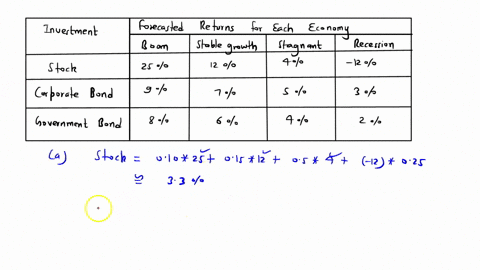 Investment Forecasted Returns for Each Economy
Boom Stable growth Stagnant Recession
Stock 25 % 12 % 4 % -12 %
Corporate Bond 9 % 7 % 5 % 3 %
Government Bond 8 % 6 % 4 % 2 %
(a) Stock = 0.10 * 25 + 0.15 * 12 + 0.5 * 4 + (-12) * 0.25
≅ 3.3 %